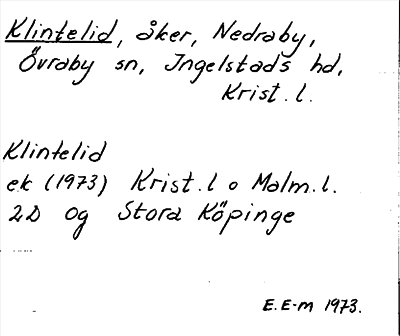 Klintelid, åker, Nedraby,
Övraby sn, Ingelstads hd,
Krist.l.
Klintelid
ek (1973) Krist.l o Malm.l.
2D 0g Stora Köpinge
E.E-m 1973.